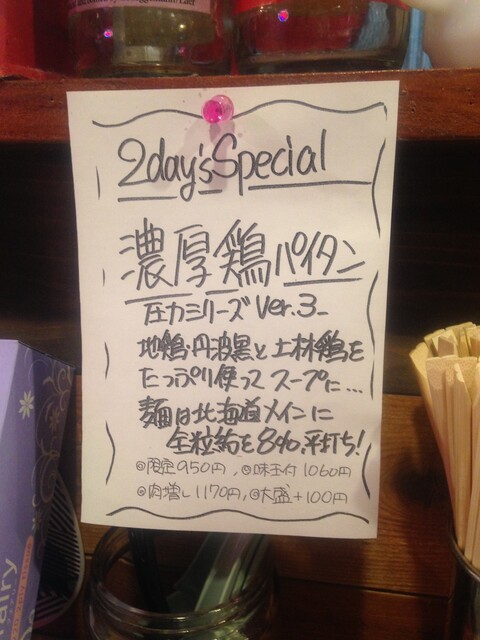 2day's Special
濃厚鶏パイタン
圧力シリーズ Ver.3_
地鶏・丹波黒と土林鶏を
たっぷり使って スープに...
麺は北海道メインに
全粒粉を8%、平打ち!
◎限定950円、◎味玉付1060円
◎肉増し1170円、◎大盛+100円
airy